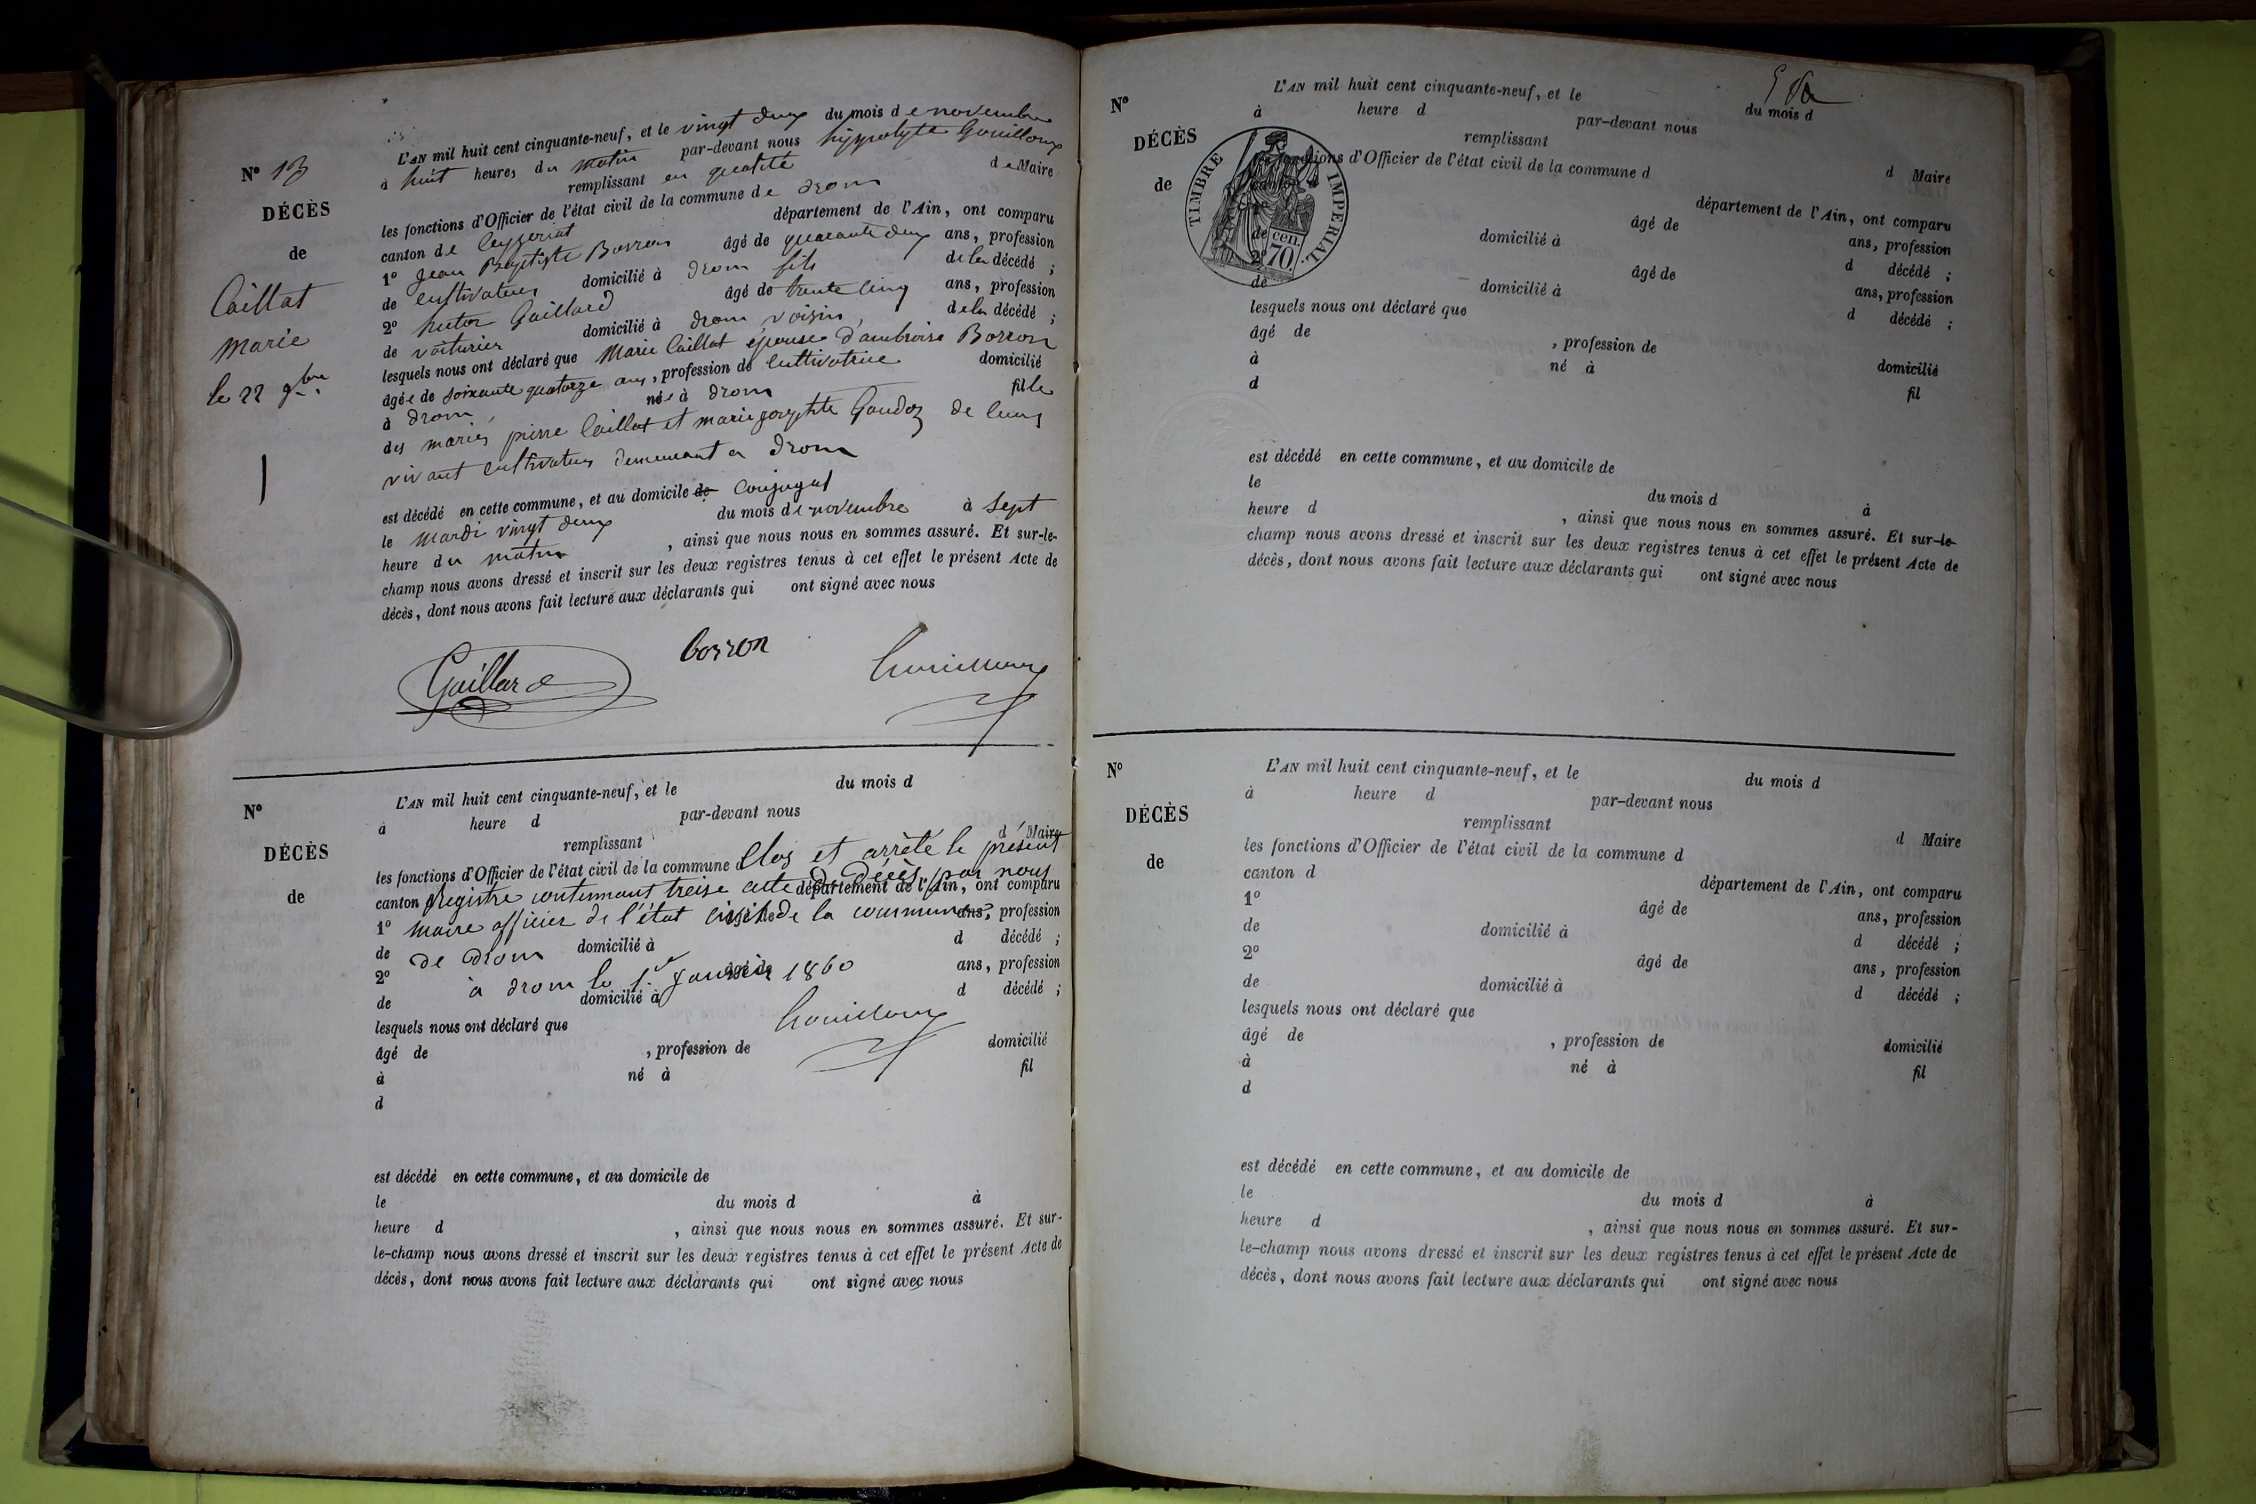 N° 13
DÉCÈS
de
Caillat
Marie
le 22 9bre
L'AN mil huit cent cinquante-neuf, et le vingt deux du mois de novembre
à huit heures du matin par-devant nous hyppolyte Gouilloux
remplissant en qualité de Maire
les fonctions d'Officier de l'état civil de la commune de drom
canton de Ceyzeriat département de l'Ain, ont comparu
1° Jean Baptiste Borron âgé de quarante deux ans, profession
de cultivateur domicilié à drom fils de la décédé ;
2° hector Gaillard âgé de trente cinq ans, profession
de voiturier domicilié à drom voisin, de la décédé ;
lesquels nous ont déclaré que Marie Caillat épouse d'ambroise Borron
âgée de soixante quatorze ans, profession de cultivatrice domicilié
à drom, née à drom fille
des mariés pierre Caillat et marie Gaudoz de leurs
vivant cultivateurs demeurant a Drom
est décédé en cette commune, et au domicile de conjugal
le mardi vingt deux du mois de novembre à sept
heure du matin , ainsi que nous nous en sommes assuré. Et sur-le-
champ nous avons dressé et inscrit sur les deux registres tenus à cet effet le présent Acte de
décès, dont nous avons fait lecture aux déclarants qui ont signé avec nous
Gaillard borron Gouilloux
N°
DÉCÈS
de
L'AN mil huit cent cinquante-neuf, et le du mois d
à heure d par-devant nous
remplissant d Maire
les fonctions d'Officier de l'état civil de la commune d Clos et arrêté le présent
canton d Registre contenant treize acte de Décès par nous département de l'Ain, ont comparu
1° Maire officier de l'état civil de la commune âgé de ans, profession
de de Drom domicilié à d décédé ;
2° à drom le 1er Janvier 1860 âgé de ans, profession
de domicilié à d décédé ;
lesquels nous ont déclaré que Gouilloux
âgé de , profession de domicilié
à né à fil
d
est décédé en cette commune, et au domicile de
le du mois d à
heure d , ainsi que nous nous en sommes assuré. Et sur-
le-champ nous avons dressé et inscrit sur les deux registres tenus à cet effet le présent Acte de
décès, dont nous avons fait lecture aux déclarants qui ont signé avec nous
N°
DÉCÈS
de
L'AN mil huit cent cinquante-neuf, et le du mois d
à heure d par-devant nous
remplissant d Maire
fonctions d'Officier de l'état civil de la commune d
canton département de l'Ain, ont comparu
âgé de ans, profession
de domicilié à d décédé ;
2° âgé de ans, profession
de domicilié à d décédé ;
TIMBRE IMPERIAL
cen.
70.
lesquels nous ont déclaré que
âgé de , profession de domicilié
à né à fil
d
est décédé en cette commune, et au domicile de
le du mois d à
heure d , ainsi que nous nous en sommes assuré. Et sur-le-
champ nous avons dressé et inscrit sur les deux registres tenus à cet effet le présent Acte de
décès, dont nous avons fait lecture aux déclarants qui ont signé avec nous
N°
DÉCÈS
de
L'AN mil huit cent cinquante-neuf, et le du mois d
à heure d par-devant nous
remplissant d Maire
les fonctions d'Officier de l'état civil de la commune d
canton d département de l'Ain, ont comparu
1° âgé de ans, profession
de domicilié à d décédé ;
2° âgé de ans, profession
de domicilié à d décédé ;
lesquels nous ont déclaré que
âgé de , profession de domicilié
à né à fil
d
est décédé en cette commune, et au domicile de
le du mois d à
heure d , ainsi que nous nous en sommes assuré. Et sur-
le-champ nous avons dressé et inscrit sur les deux registres tenus à cet effet le présent Acte de
décès, dont nous avons fait lecture aux déclarants qui ont signé avec nous